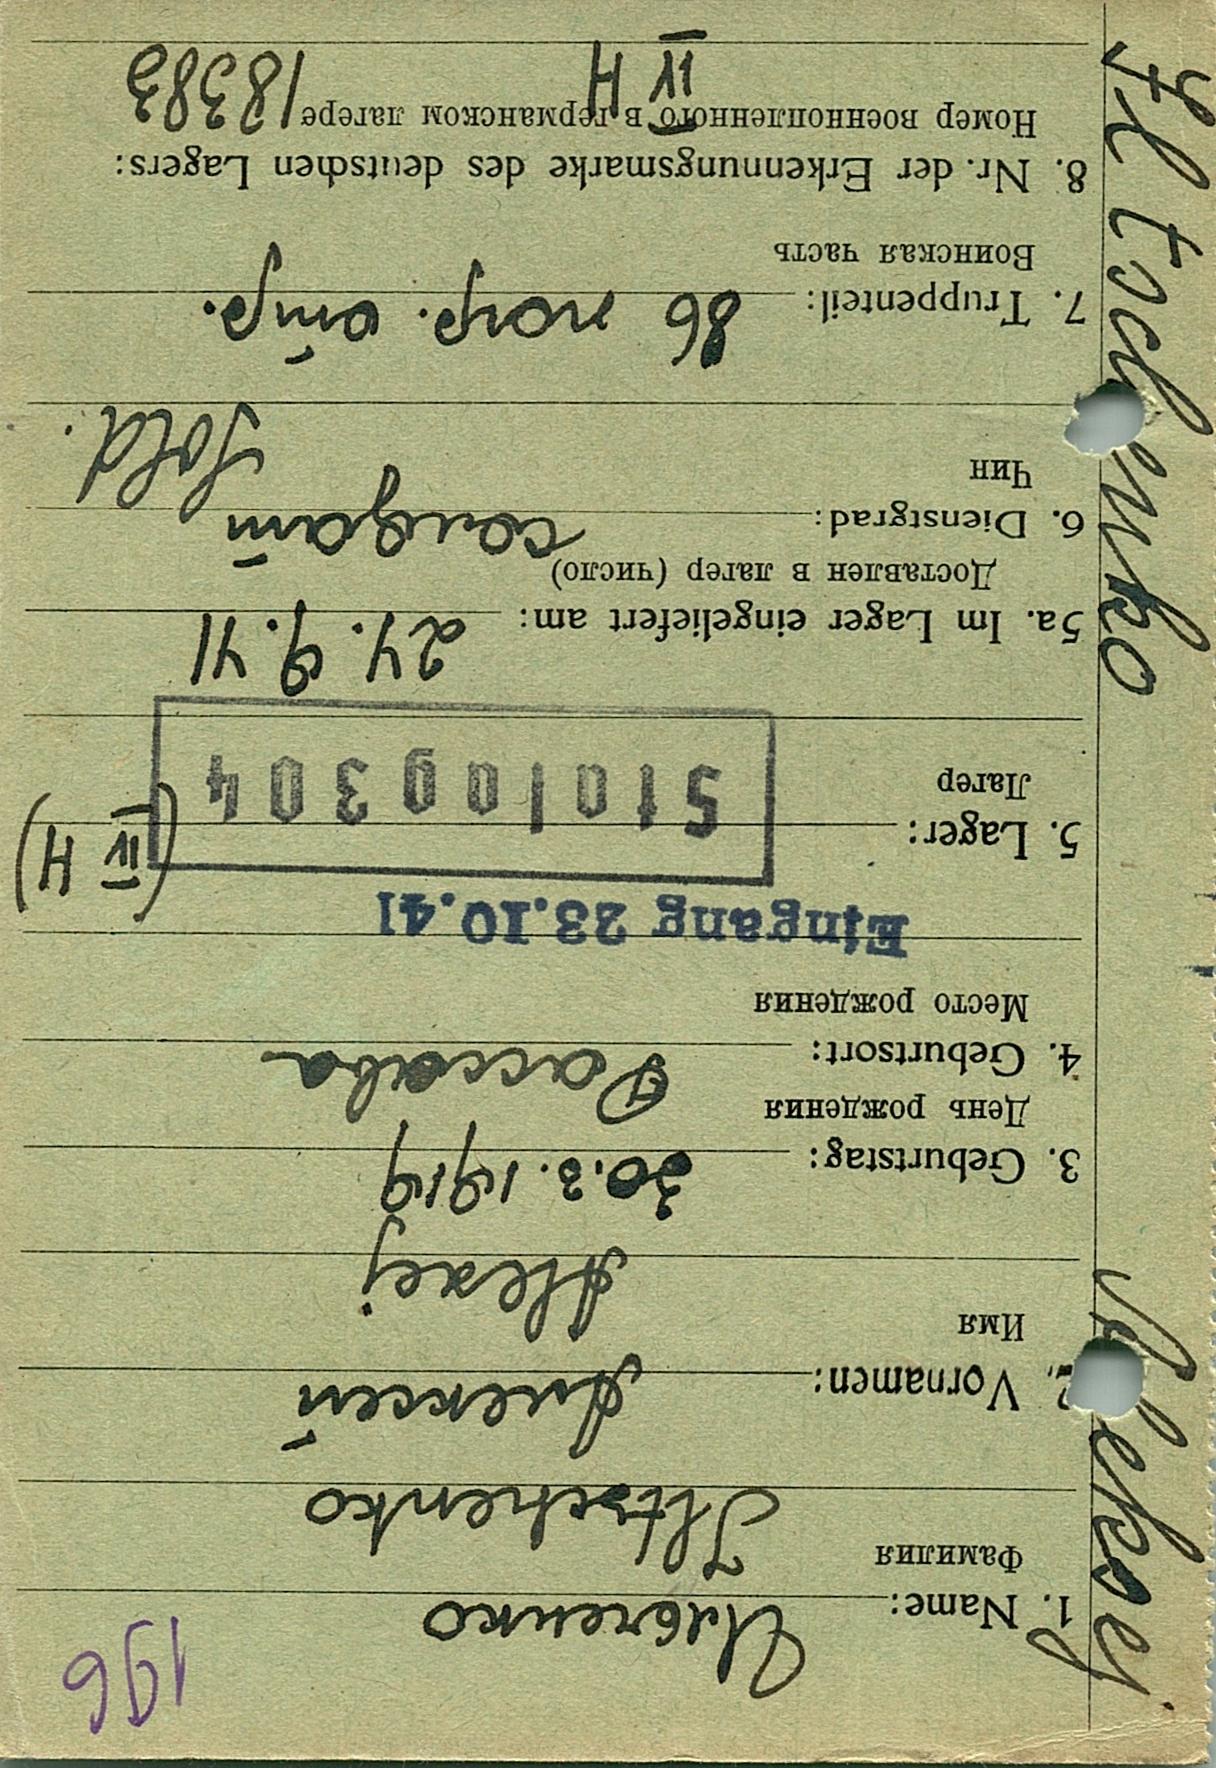 196
1. Name: Ильченко
Фамилия
Iltschenko
2. Vornamen: Алексей
Имя
Alexej
3. Geburtstag: 30.3.1919
День рождения
4. Geburtsort:
Место рождения
Eingang 23.10.41
5. Lager: Stalag 304 (IV H)
Лагер
5a. Im Lager eingeliefert am: 24.9.41
Доставлен в лагер (число)
6. Dienstgrad: солдат
Чин
Sold.
7. Truppenteil: 86 погр. отр.
Воинская часть
8. Nr. der Erkennungsmarke des deutschen Lagers:
Номер военнопленного в германском лагере 18383
IV H
Aleksej